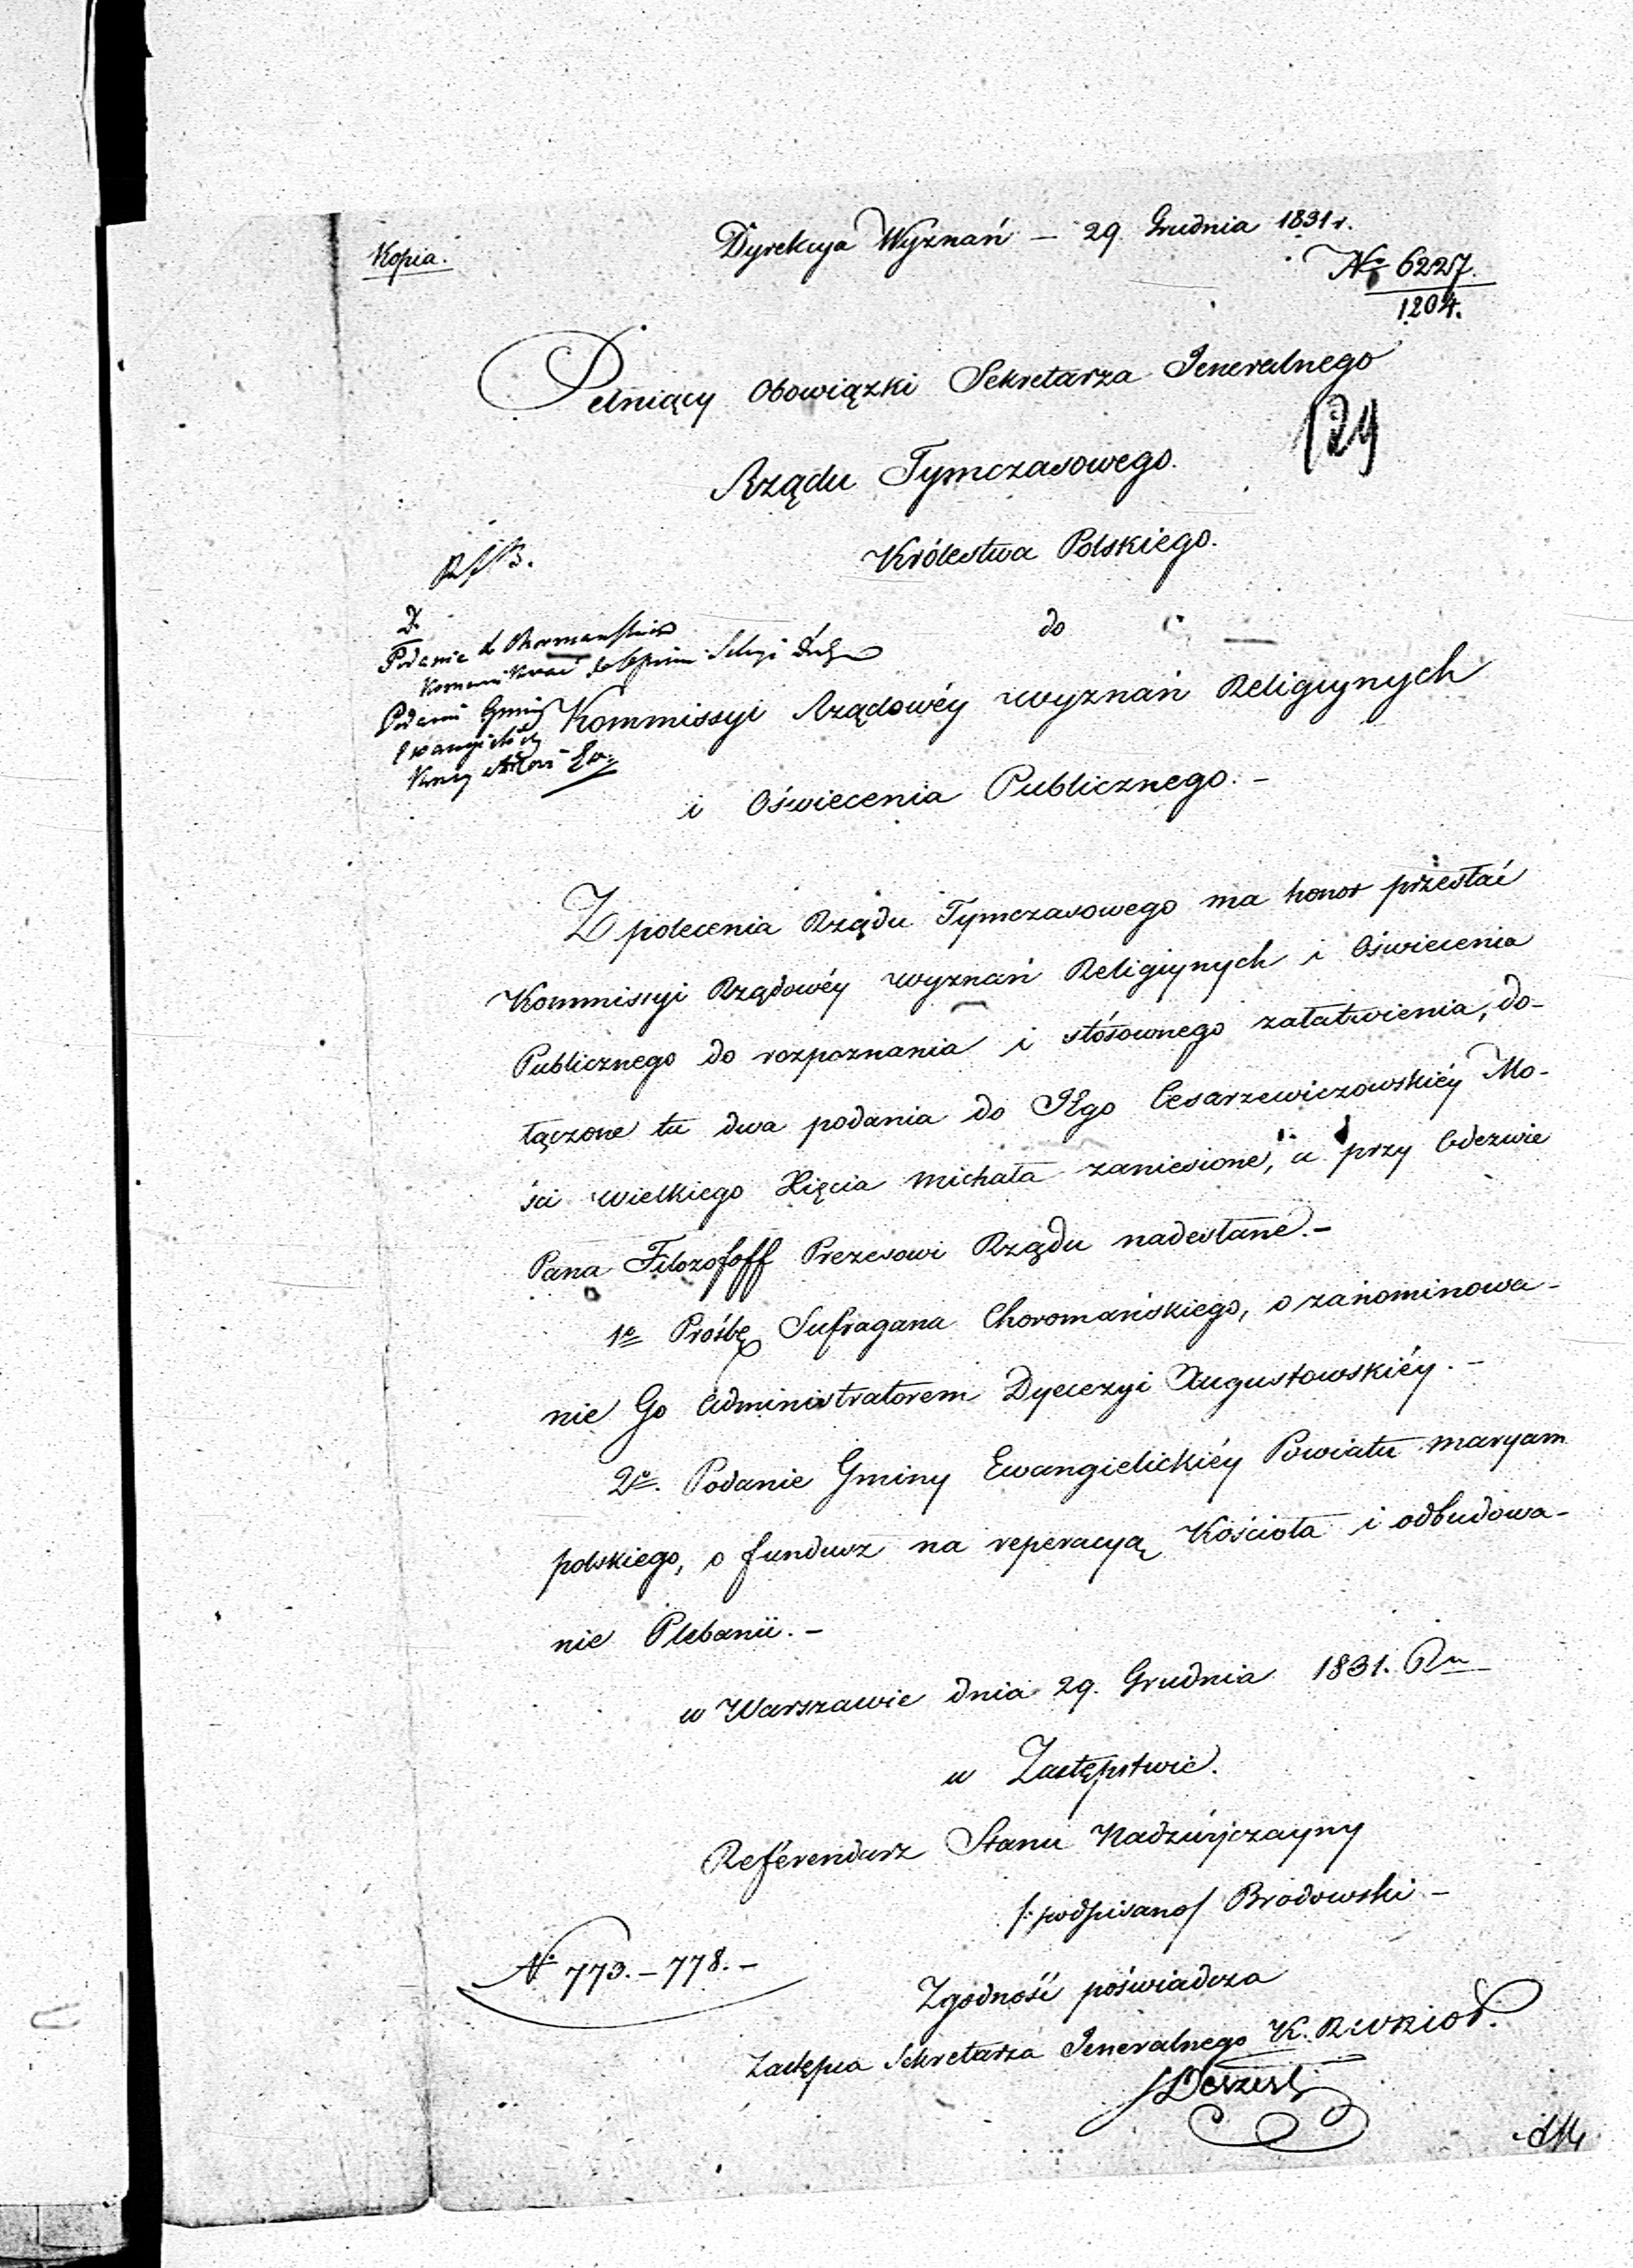 Kopia.
Dyrekcya Wyznań – 29. Grudnia 1831 r.
No 6227.
1204.
Pełniący Obowiązki Sekretarza Jeneralnego
129
Rządu Tymczasowego.
Królestwa Polskiego.
do
Podanie
Podanie Gminy
Kommissyi Rządowéy Wyznań Religiynych
i Oświecenia Publicznego. –
Z polecenia Rządu Tymczasowego ma honor przesłać
Kommissyi Rządowéy Wyznań Religiynych i Oświecenia
Publicznego do rozpoznania i stósownego załatwienia, do-
łączone tu dwa podania do JEgo Cesarzewiczowskiéy Mo-
ści Wielkiego Xięcia Michała zaniesione, a przy Odezwie
Pana Filozofoff Prezesowi Rządu nadesłane. –
1e Prośbę Sufragana Choromańskiego, o zanominowa-
nie Go Administratorem Dyecezyi Augustowskiéy. –
2e. Podanie Gminy Ewangielickiéy Powiatu Maryam
polskiego, o fundusz na reperacyą Kościoła i odbudowa-
nie Plebanii. –
w Warszawie dnia 29. Grudnia 1831. Ru
w Zastępstwie.
Referendarz Stanu Nadzwyczayny
/: podpisano / Brodowski –
N. 773. – 778. –
Zgodność poświadcza
Zastępca Sekretarza Jeneralnego K. R. W. R. i O. P.